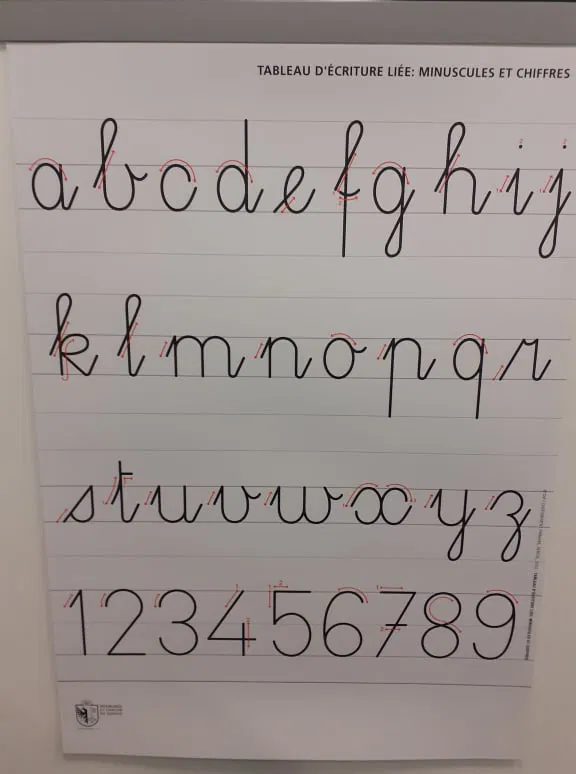 TABLEAU D'ÉCRITURE LIÉE: MINUSCULES ET CHIFFRES
a b c d e f g h i j
k l m n o p q r
s t u v w x y z
1 2 3 4 5 6 7 8 9
RÉPUBLIQUE
ET CANTON
DE GENÈVE